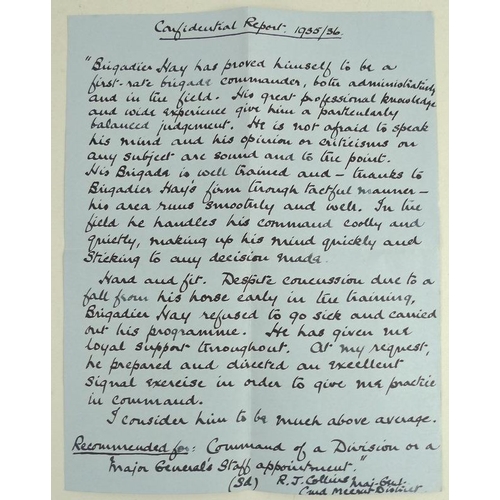 Confidential Report. 1935/36.
"Brigadier Hay has proved himself to be a
first-rate brigade commander, both administratively
and in the field. His great professional knowledge
and wide experience give him a particularly
balanced judgement. He is not afraid to speak
his mind and his opinion or criticisms on
any subject are sound and to the point.
His Brigade is well trained and - thanks to
Brigadier Hay's firm through tactful manner -
his area runs smootely and well. In the
field he handles his command coolly and
quietly, making up his mind quickly and
sticking to any decision made.
Hard and fit. Despite concussion due to a
fall from his horse early in the training,
Brigadier Hay refused to go sick and carried
out his programme. He has given me
loyal support throughout. At my request,
he prepared and directed an excellent
signal exercise in order to give me practice
in command.
I consider him to be much above average.
Recommended for: Command of a Division or a
Major General's Staff appointment."
(Sd) R. J. Collins Maj-Gen:
Cmd Meerut District